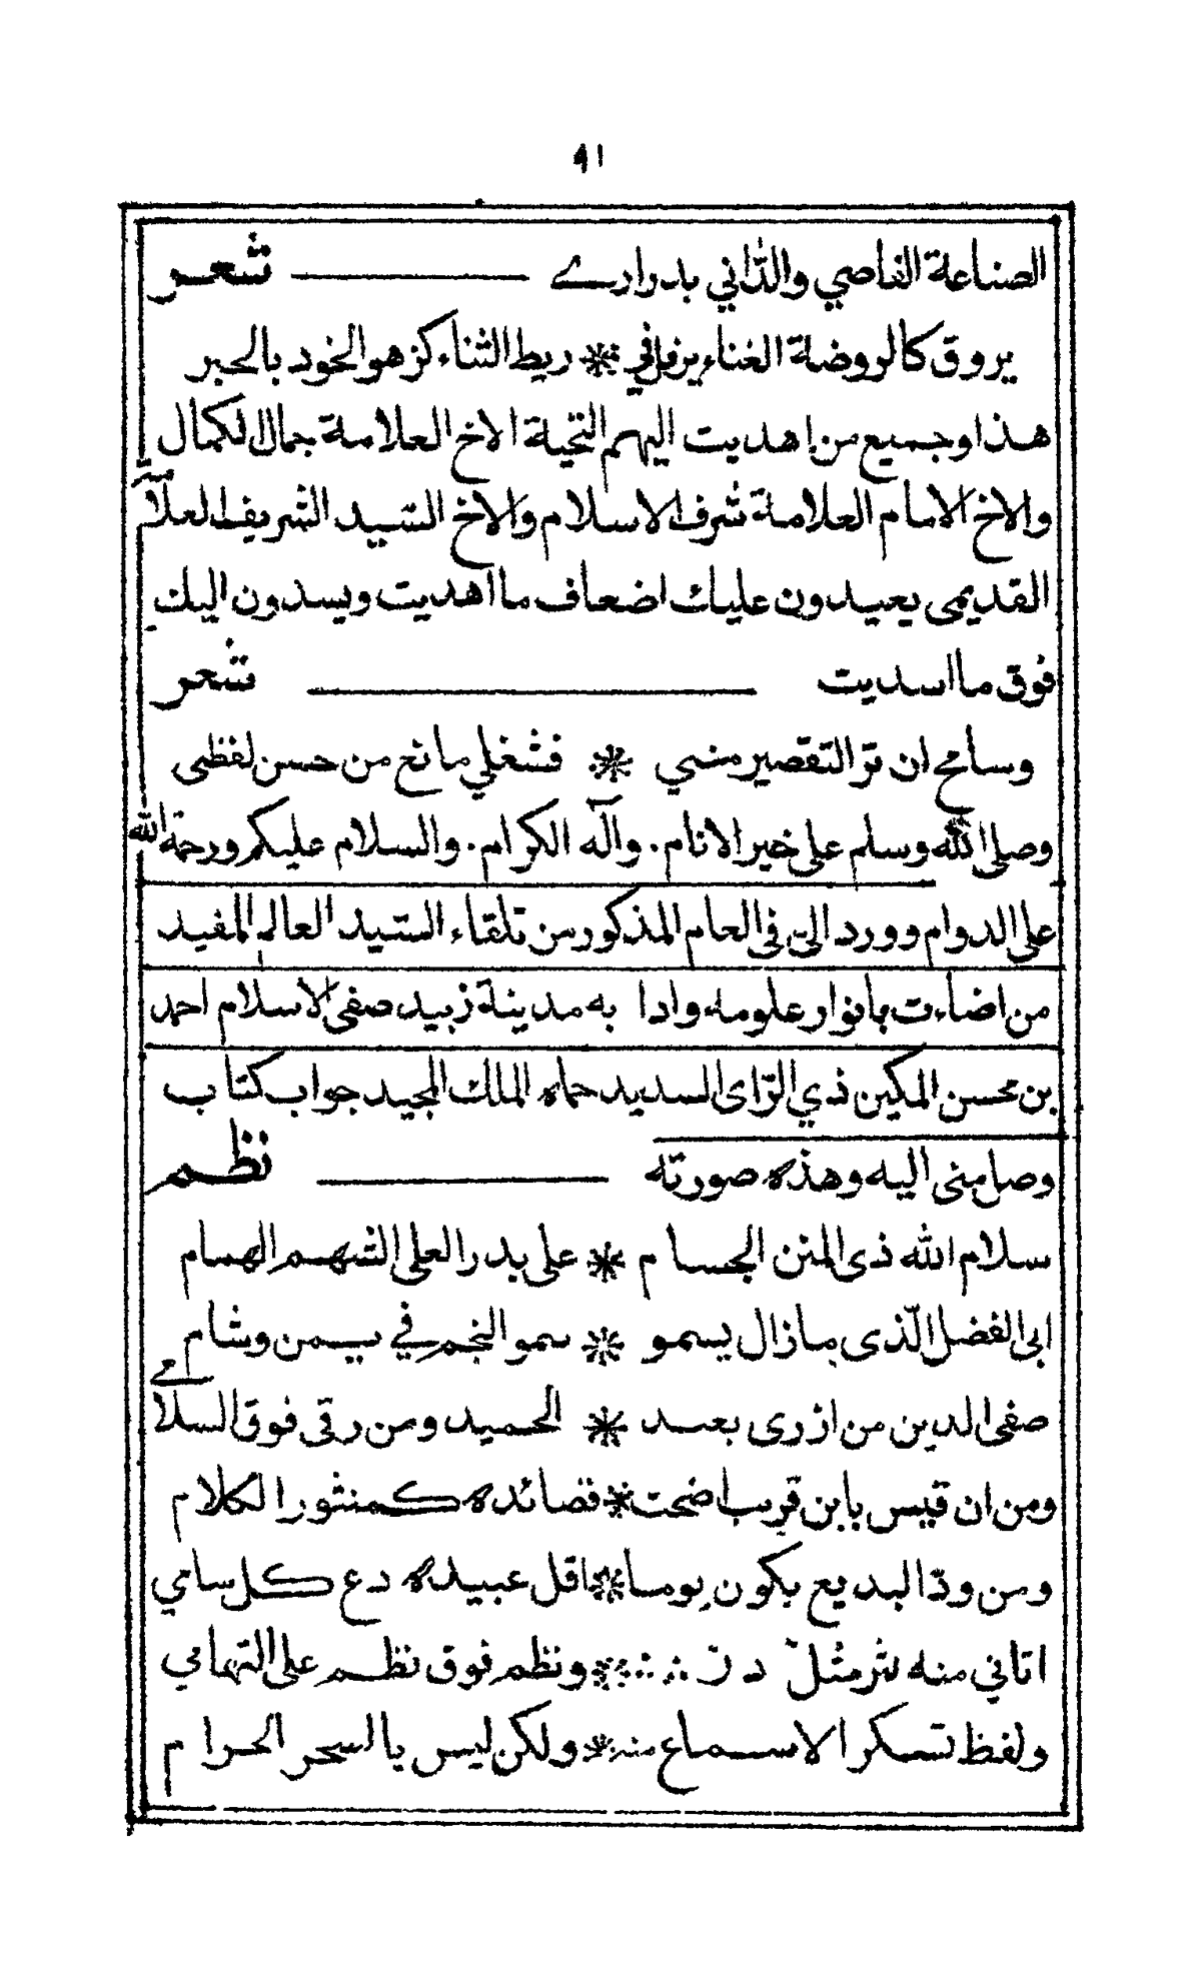 ٤١
الصناعة القاصي والداني بدراري ــــــ شعر
يروق كالروضة الغناء يرفل في * ريط الثناء كزهو الخود بالحبر
هذا وجميع من اهديت اليهم التحية الاخ العلامة جمال الكمال
والاخ الامام العلامة شرف الاسلام والاخ السيد الشريف العلامة
القديمى يعيدون عليك اضعاف ما اهديت ويسدون اليك
فوق ما اسديت ــــــ شعر
وسامح ان تر التقصير مني * فشغلي مانع من حسن لفظى
وصلى الله وسلم على خير الانام . وآله الكرام . والسلام عليكم ورحمة الله
على الدوام وورد الي فى العام المذكور من تلقاء السّيد العالم المفيد
من اضاءت بانوار علومه وادابه مدينة زبيد صفى الاسلام احمد
بن محسن المكين ذي الرّاى السديد حماه الملك المجيد جواب كتاب
وصل منى اليه وهذه صورته ــــــ نظم
سلام الله ذى المنن الجسام * على بدر العلى الشهم الهمام
ابى الفضل الّذى ما زال يسمو * سمو النجم في يمن وشام
صفى الدين من ازرى بعبد * الحميد ومن رقى فوق السلامي
ومن ان قيس بابن قريب اضحت * قصائده كمنثور الكلام
ومن ودّ البديع يكون يوما * اقل عبيده دع كل سامي
اتاني منه نثر مثل درّ * ونظم فوق نظم على التهامي
ولفظ تسكر الاسماع منه * ولكن ليس بالسحر الحرام